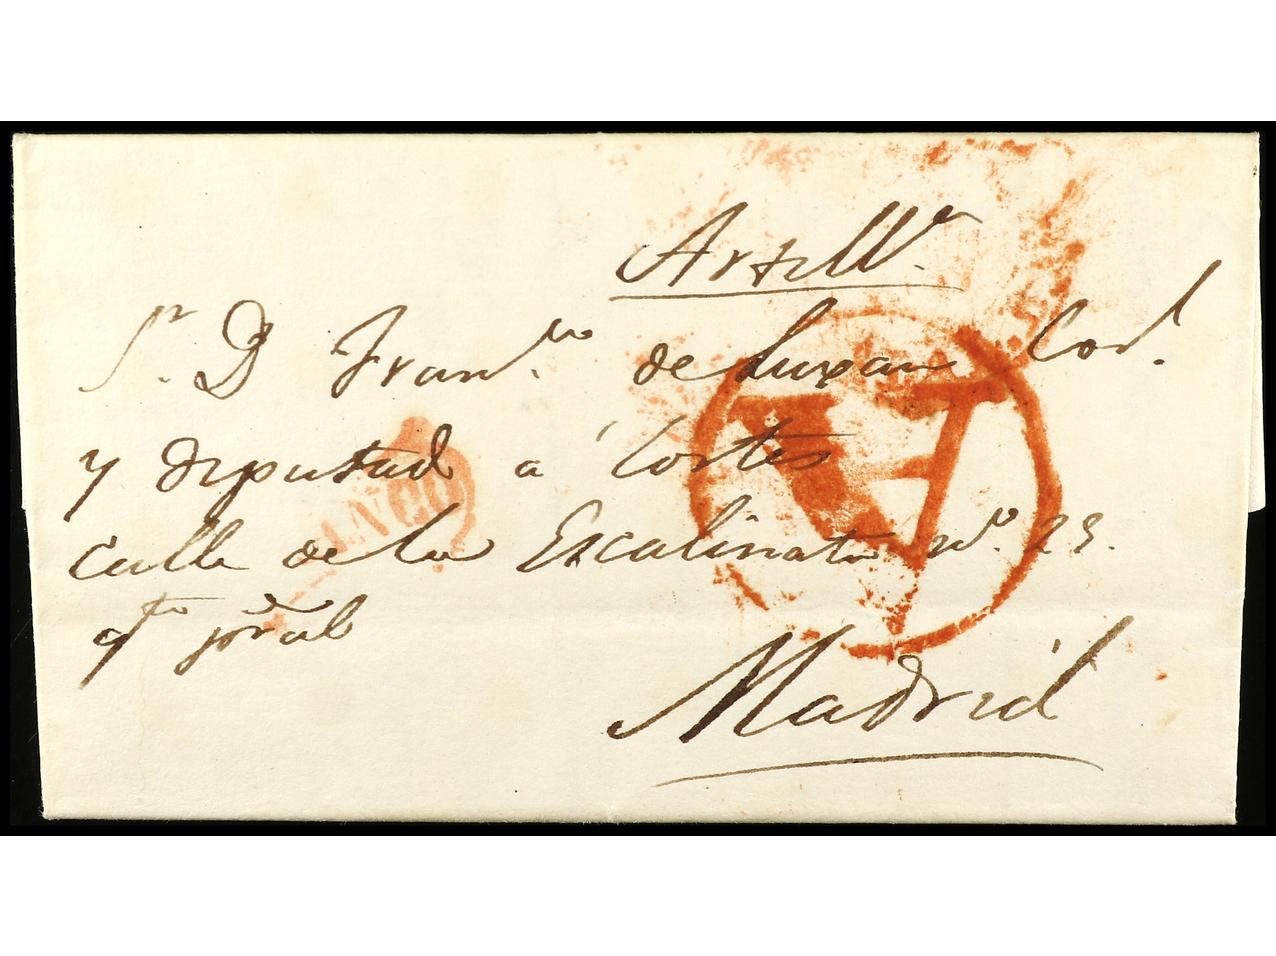 Artillª.
Sr. D Franco. de Luxan Cor.l
y diputad a Cortes
calle de la Escalinata nº. 23.
qto pral
Madrid
A